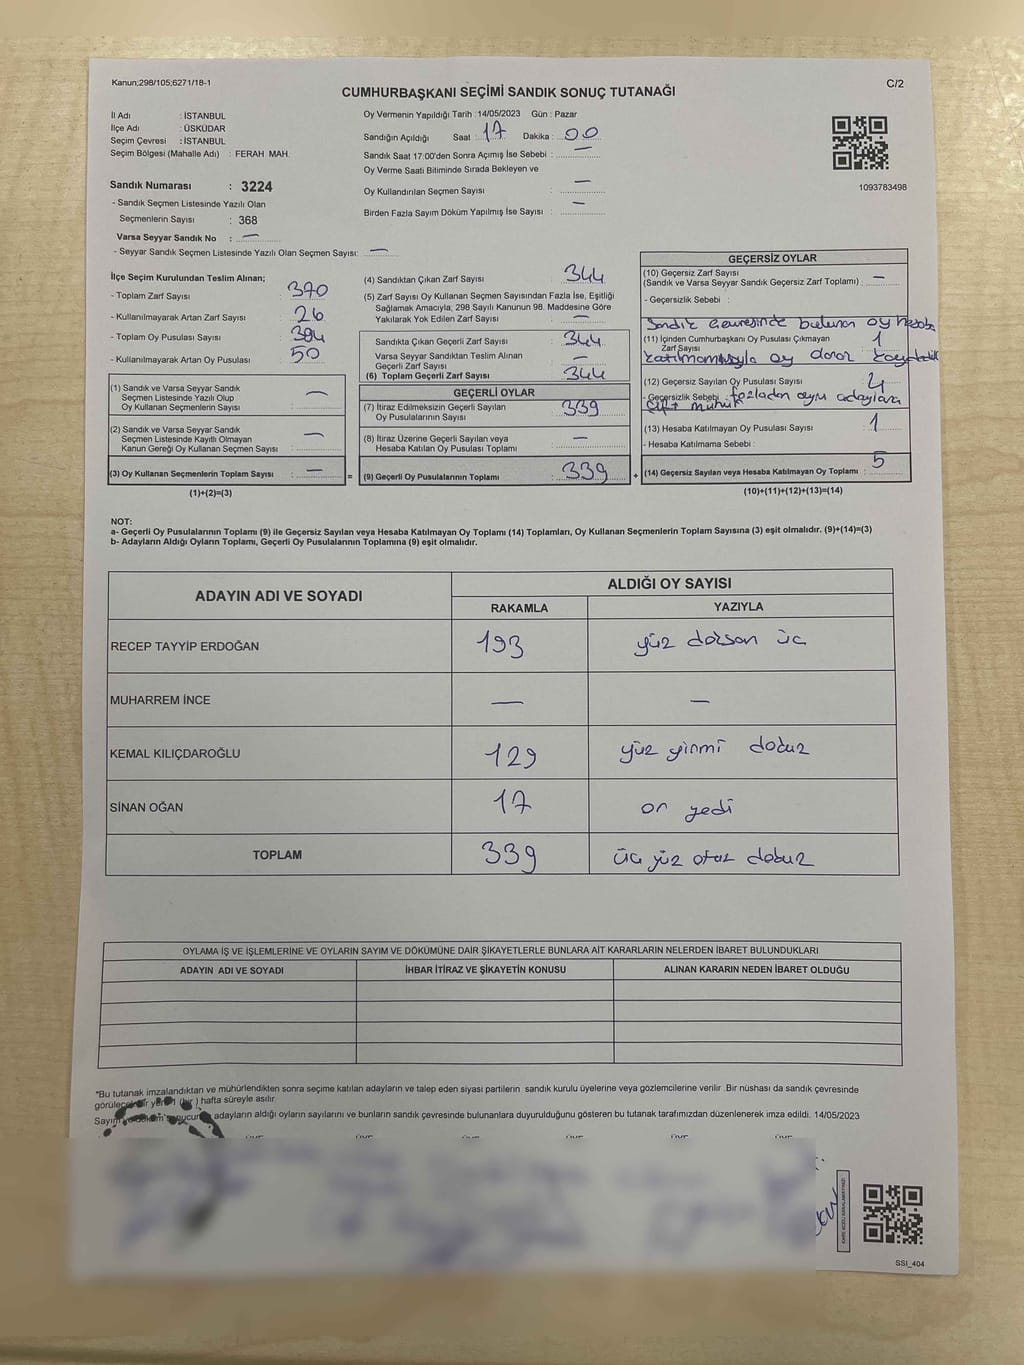 Kanun;298/105;6271/18-1
C/2
CUMHURBAŞKANI SEÇİMİ SANDIK SONUÇ TUTANAĞI
İl Adı : İSTANBUL
İlçe Adı : ÜSKÜDAR
Seçim Çevresi : İSTANBUL
Seçim Bölgesi (Mahalle Adı) : FERAH MAH.
Sandık Numarası : 3224
- Sandık Seçmen Listesinde Yazılı Olan
Seçmenlerin Sayısı : 368
Varsa Seyyar Sandık No : —
- Seyyar Sandık Seçmen Listesinde Yazılı Olan Seçmen Sayısı: —
Oy Vermenin Yapıldığı Tarih : 14/05/2023 Gün : Pazar
Sandığın Açıldığı Saat : 17 Dakika : 00
Sandık Saat 17:00'den Sonra Açımış İse Sebebi : —
Oy Verme Saati Bitiminde Sırada Bekleyen ve
Oy Kullandırılan Seçmen Sayısı : —
Birden Fazla Sayım Döküm Yapılmış İse Sayısı : —
1093783498
İlçe Seçim Kurulundan Teslim Alınan;
- Toplam Zarf Sayısı : 370
- Kullanılmayarak Artan Zarf Sayısı : 26
- Toplam Oy Pusulası Sayısı : 394
- Kullanılmayarak Artan Oy Pusulası : 50
(1) Sandık ve Varsa Seyyar Sandık
Seçmen Listesinde Yazılı Olup
Oy Kullanan Seçmenlerin Sayısı : —
(2) Sandık ve Varsa Seyyar Sandık
Seçmen Listesinde Kayıtlı Olmayan
Kanun Gereği Oy Kullanan Seçmen Sayısı : —
(3) Oy Kullanan Seçmenlerin Toplam Sayısı : — =
(1)+(2)=(3)
(4) Sandıktan Çıkan Zarf Sayısı : 344
(5) Zarf Sayısı Oy Kullanan Seçmen Sayısından Fazla İse, Eşitliği
Sağlamak Amacıyla, 298 Sayılı Kanunun 98. Maddesine Göre
Yakılarak Yok Edilen Zarf Sayısı : —
Sandıkta Çıkan Geçerli Zarf Sayısı : 344
Varsa Seyyar Sandıktan Teslim Alınan
Geçerli Zarf Sayısı : —
(6) Toplam Geçerli Zarf Sayısı : 344
GEÇERLİ OYLAR
(7) İtiraz Edilmeksizin Geçerli Sayılan
Oy Pusulalarının Sayısı : 339
(8) İtiraz Üzerine Geçerli Sayılan veya
Hesaba Katılan Oy Pusulası Toplamı : —
(9) Geçerli Oy Pusulalarının Toplamı : 339 +
GEÇERSİZ OYLAR
(10) Geçersiz Zarf Sayısı
(Sandık ve Varsa Seyyar Sandık Geçersiz Zarf Toplamı) : —
- Geçersizlik Sebebi :
Sandık Çevresinde bulunan oy hesaba
(11) İçinden Cumhurbaşkanı Oy Pusulası Çıkmayan
Zarf Sayısı : 1
katılmamasıyla oy
(12) Geçersiz Sayılan Oy Pusulası Sayısı : 4
- Geçersizlik Sebebi : fazladan aynı adaylara
çift mühür
(13) Hesaba Katılmayan Oy Pusulası Sayısı : 1
- Hesaba Katılmama Sebebi :
(14) Geçersiz Sayılan veya Hesaba Katılmayan Oy Toplamı : 5
(10)+(11)+(12)+(13)=(14)
NOT:
a- Geçerli Oy Pusulalarının Toplamı (9) ile Geçersiz Sayılan veya Hesaba Katılmayan Oy Toplamı (14) Toplamları, Oy Kullanan Seçmenlerin Toplam Sayısına (3) eşit olmalıdır. (9)+(14)=(3)
b- Adayların Aldığı Oyların Toplamı, Geçerli Oy Pusulalarının Toplamına (9) eşit olmalıdır.
ADAYIN ADI VE SOYADI
ALDIĞI OY SAYISI
RAKAMLA YAZIYLA
RECEP TAYYİP ERDOĞAN 193 yüz doksan üç
MUHARREM İNCE — —
KEMAL KILIÇDAROĞLU 129 yüz yirmi dokuz
SİNAN OĞAN 17 on yedi
TOPLAM 339 üç yüz otuz dokuz
OYLAMA İŞ VE İŞLEMLERİNE VE OYLARIN SAYIM VE DÖKÜMÜNE DAİR ŞİKAYETLERLE BUNLARA AİT KARARLARIN NELERDEN İBARET BULUNDUKLARI
ADAYIN ADI VE SOYADI İHBAR İTİRAZ VE ŞİKAYETİN KONUSU ALINAN KARARIN NEDEN İBARET OLDUĞU
*Bu tutanak imzalandıktan ve mühürlendikten sonra seçime katılan adayların ve talep eden siyasi partilerin sandık kurulu üyelerine veya gözlemcilerine verilir .Bir nüshası da sandık çevresinde
(bir ) hafta süreyle asılır.
adayların aldığı oyların sayılarını ve bunların sandık çevresinde bulunanlara duyurulduğunu gösteren bu tutanak tarafımızdan düzenlenerek imza edildi. 14/05/2023
SSI_404